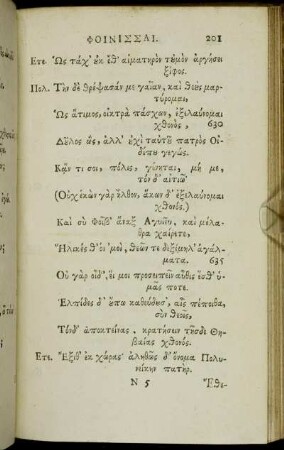 ΦΟΙΝΙΣΣΑΙ. 201
Ετε. Ὡς τάχ' ἐκ ἔθ' αἱματηρὸν τὐμὸν ἀργήσει
ξίφος.
Πολ. Τὴν δὲ θρέψασάν με γαῖαν, καὶ θεὺς μαρ-
τύρομαι,
Ὡς ἄτιμος, οἰκτρὰ πάσχων, ἐξελαύνομαι
χθονὸς, 630
Δῦλος ὥς, ἀλλ' ἐχὶ ταὐτῦ πατρὸς Οἰ-
δίπυ γεγώς.
Κᾄν τι σοι, πόλις, γένηται, μή με,
τόνδ' αἰτιῶ
(Οὐχ ἑκὼν γὰρ ἦλθον, ἄκων δ' ἐξελαύνομαι
χθονός.)
Καὶ σὺ Φοῖβ' ἄναξ Ἀγυιεῦ, καὶ μέλα-
θρα χαίρετε,
Ἥλικές θ' οἱ 'μοὶ, θεῶν τε δεξίμηλ' ἀγάλ-
ματα. 635
Οὐ γὰρ οἶδ', εἴ μοι προσειπεῖν αὖθις ἔσθ' ὑ-
μᾶς ποτε.
Ἐλπίδες δ' ὔπω καθεύδυσ', αἷς πέποιθα,
σὺν θεοῖς,
Τόνδ' ἀποκτείνας, κρατήσειν τῆσδε Θη-
βαίας χθονός.
Ετε. Ἔξιθ' ἐκ χώρας· ἀληθῶς δ' ὄνομα Πολυ-
νείκην πατὴρ.
N 5 Ἔθε-